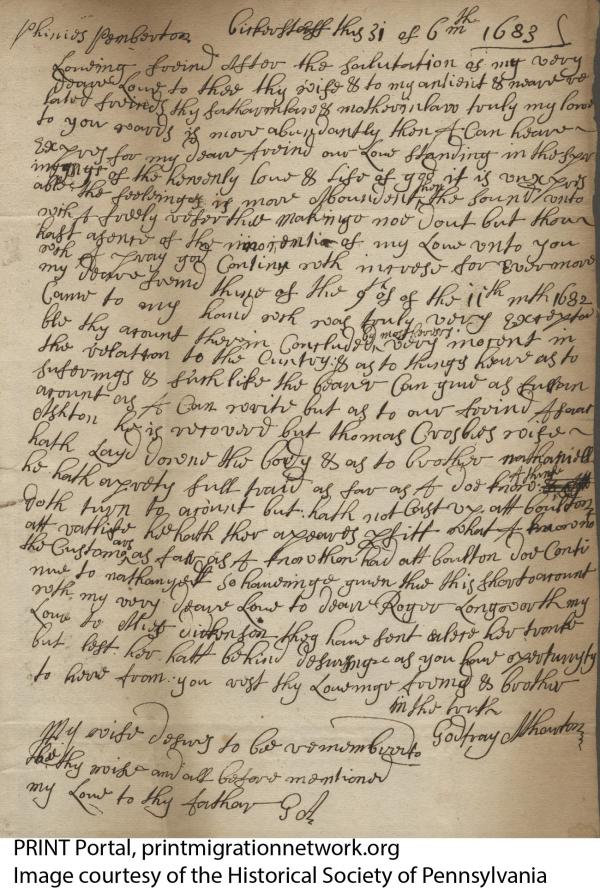 Phinies Pemberton Bickerstaff this 31 of 6th m 1683
Loveing freind After the salutation of my very
deare Love to thee thy wife & to my antient & neare re
lated freinds thy father in lawe & mother in law truly my love
to you wards is more abundantly then I Can heare
Expres for my deare freind our Love standing in the
of the heavenly love & life of god it is unexpres
able the feeleinge is more Aboundent then the sound unto
wich I freely refer thee makeinge noe dout but thou
hast a sence of the of my Love unto you
wch I pray god Continu with increse for Evermore
my deare freind thine of the 9 of the 11th mth 1682
Came to my hand wch was truly very Excepta
ble thy acount therin Concluded by most very in
the relation to the Cuntry & as to things heare as to
suferings & such like the bearer Can give as full an
acount as I Can write but as to our freind Isaac
Ashton he is recoverd but thomas Crosbies wife
hath layd downe the body & as to brother nathaniell
he hath a prety full traid as far as I doe know
doth turn to acount but hath not Cast up att boulton
att he hath ther what I
the Customars as far as I know thou had att boulton doe Conti
nue to nathanyell so haveinge given thee this short acount
with my very deare Love to deare Roger Longworth my
Love to dickenson they have sent her tronke
but left her hatt behind desiringe as you have opertunyty
to heere from you rest thy Loveinge freind & brother
in the truth
Godfray Atharton
My wife desires to bee remembered to
thy wife and all before mentioned
my Love to thy father G A
PRINT Portal, printmigrationnetwork.org
Image courtesy of the Historical Society of Pennsylvania